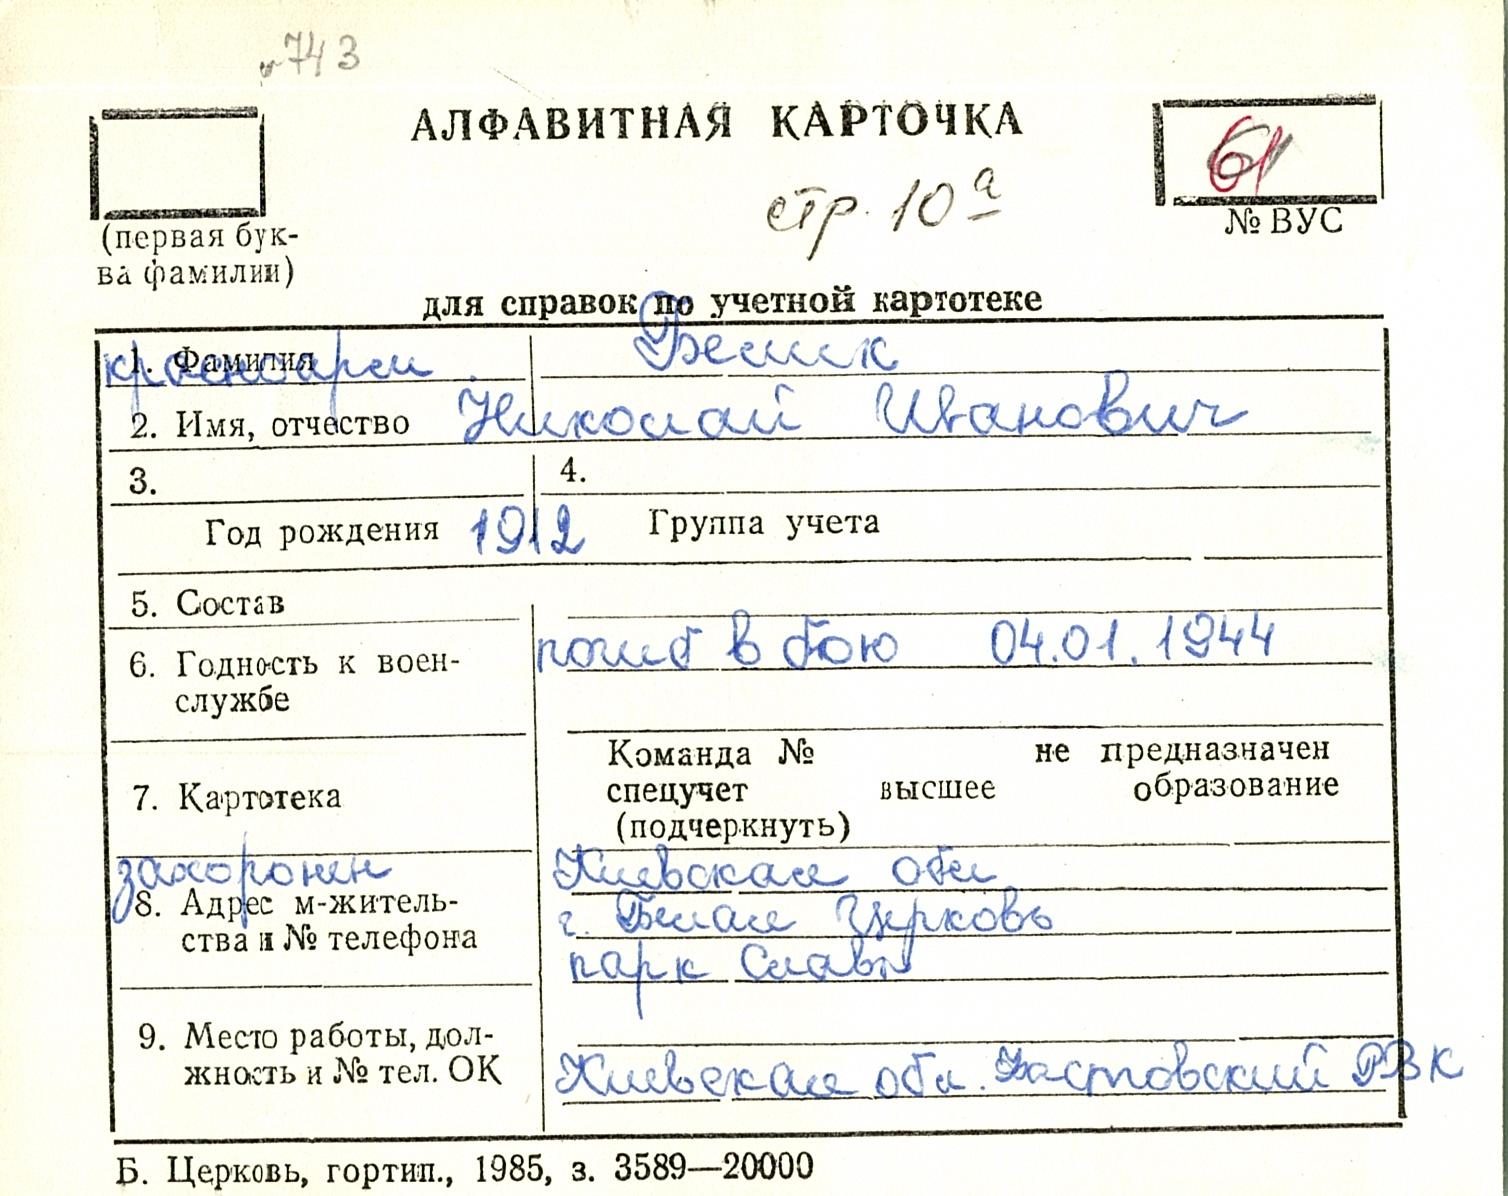 743
АЛФАВИТНАЯ КАРТОЧКА
61
стр. 10а
№ ВУС
(первая бук-
ва фамилии)
для справок по учетной картотеке
1. Фамилия
красноарм.
2. Имя, отчество Николай Иванович
3.
4.
Год рождения 1912 Группа учета
5. Состав
погиб в бою 04.01.1944
6. Годность к воен-
службе
Команда № не предназначен
спецучет высшее образование
(подчеркнуть)
7. Картотека
захоронен Киевская обл
8. Адрес м-житель-
г. Белая Церковь
ства и № телефона
парк Славы
9. Место работы, дол-
жность и № тел. ОК
Киевская обл. Фастовский РВК
Б. Церковь, гортип., 1985, з. 3589—20000